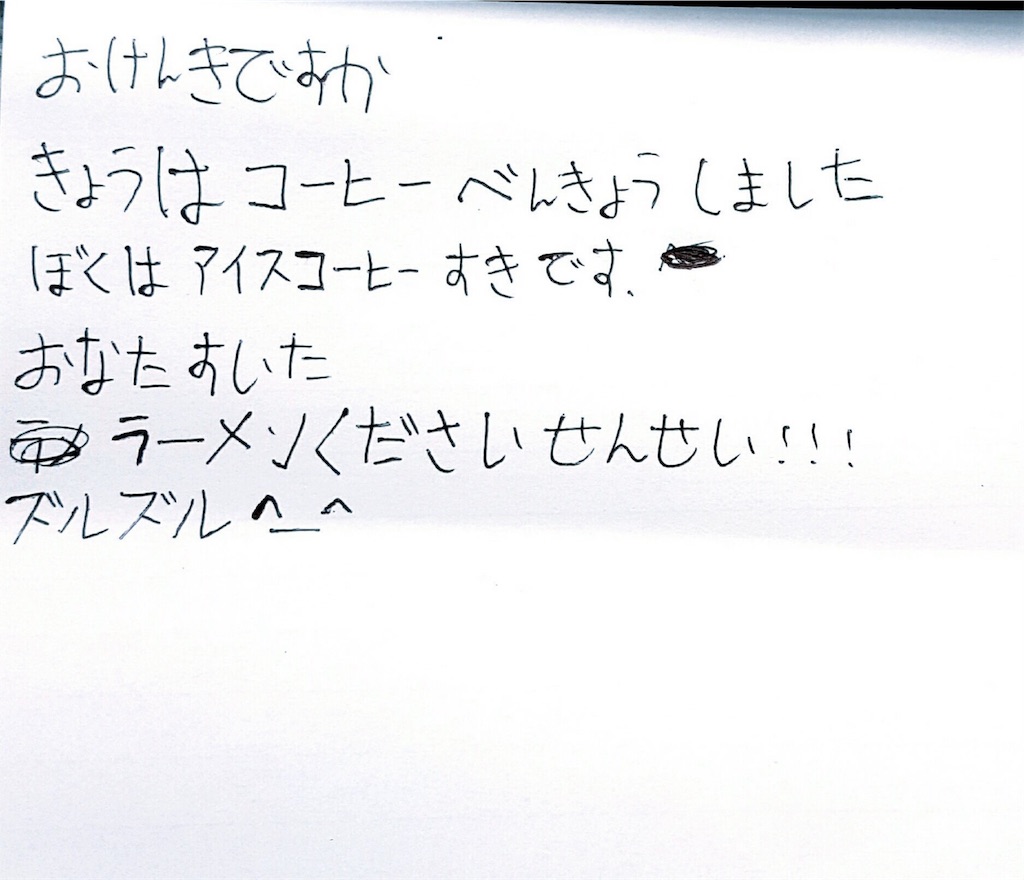 おけんきですか
きょうは コーヒー べんきょう しました
ぼくは アイスコーヒー すき です.
おなた すいた
ラーメンください せんせい!!!
ズルズル ^_^